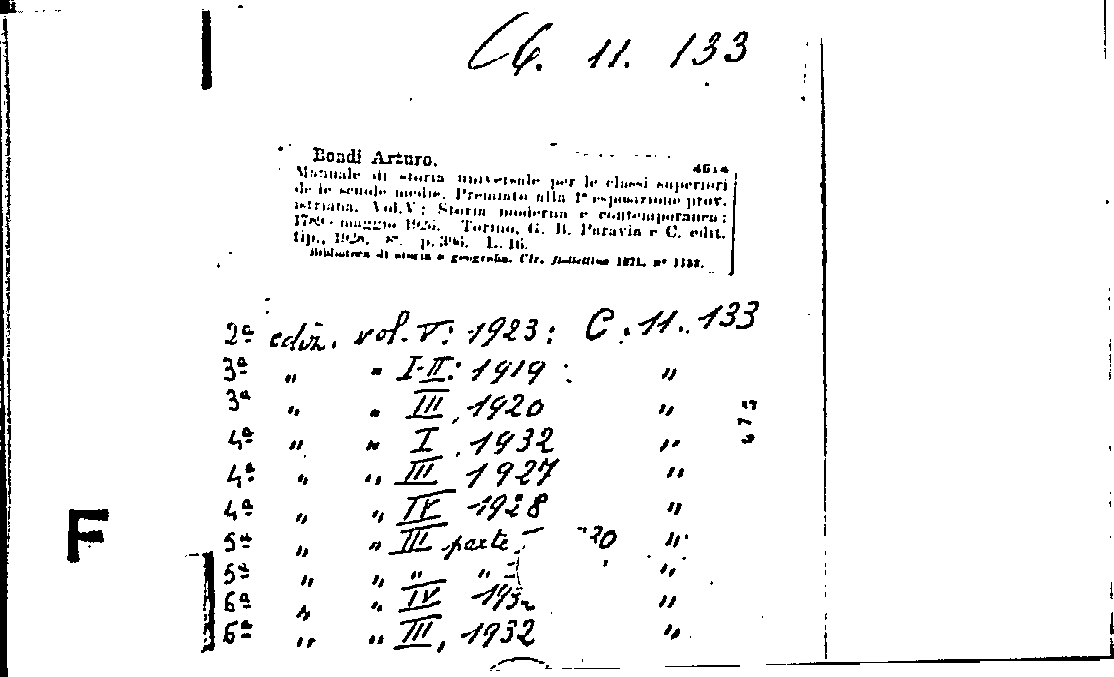 C6. 11. 133
Bondi Arturo.
Manuale di storia universale per le classi superiori
de le scuole medie. Premiato alla 1ª esposizione prov.
istriana. Vol. V: Storia moderna e contemporanea:
maggio Torino, G. B. Paravia e C. edit.
tip., 1928. 8°. p. L. 16.
Biblioteca di storia e geografia. Cfr. Bollettino
2ª ediz. vol. V: 1923: C. 11. 133
3ª „ „ I-II: 1919 : „
3ª „ „ III, 1920 „
4ª „ „ I, 1932 „
4ª „ „ III 1927 „
4ª „ „ IV 1928 „
5ª „ „ III parte 20 „
5ª „ „ „ „ „
6ª „ „ IV 193 „
6ª „ „ III, 1932 „
F